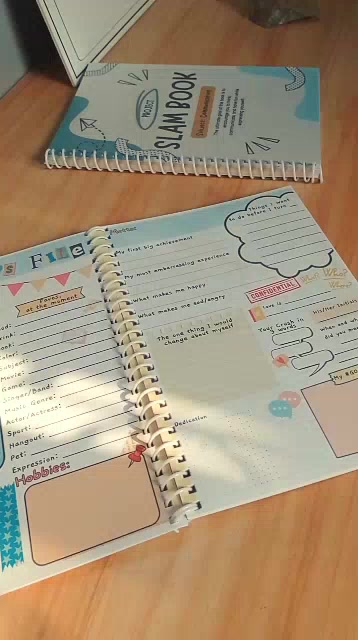 PROJECT
SLAM BOOK
FILE
Faves
at the moment
Color:
Subject:
Movie:
Game:
Singer/Band:
Music Genre:
Actor/Actress:
Sport:
Hangout:
Pet:
Expression:
Hobbies:
My first big achievement
My most embarrassing experience
What makes me happy
What makes me sad/angry
The one thing I would
change about myself
Dedication
Things I want
to do before I turn
CONFIDENTIAL
Love is
Your Crush in
words
His/Her Initials
when and wh
did you
My #GO